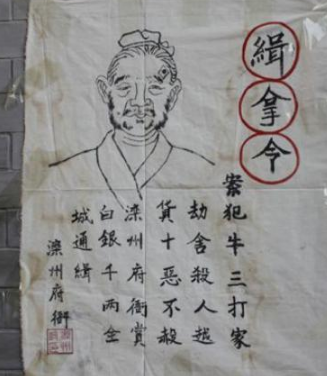 緝拿令
案犯牛三打家
劫舍殺人越
貨十惡不赦
灤州府衙賞
白銀千兩全
城通緝
灤州府衙